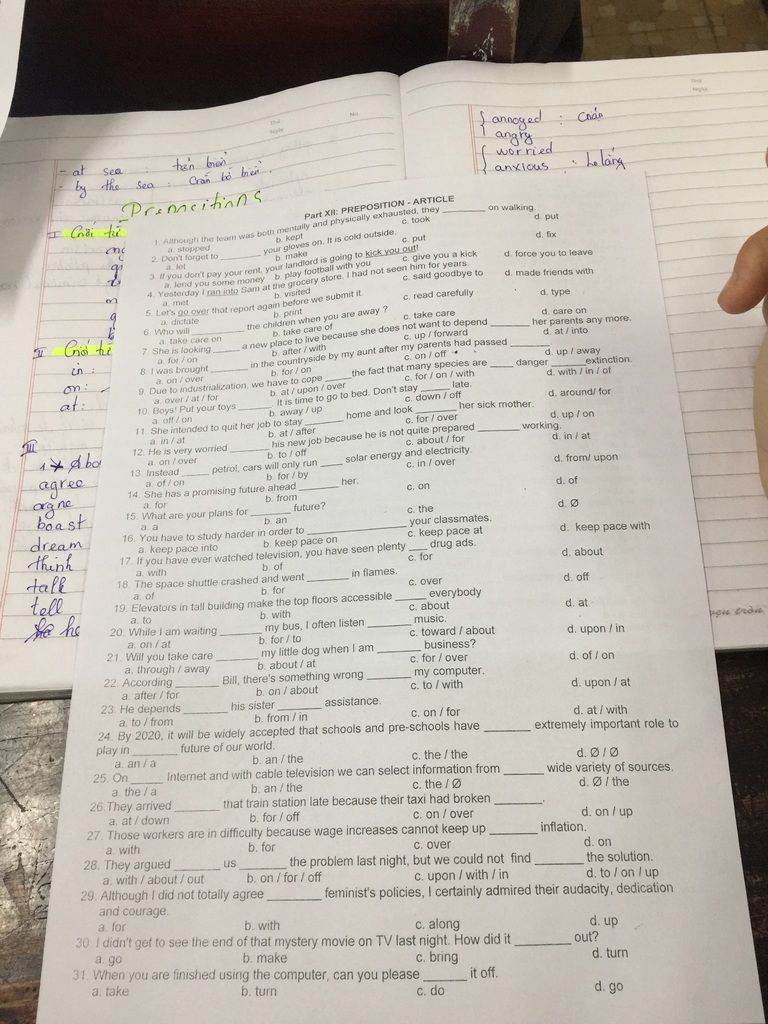 Thứ
Ngày
No
Thứ
Ngày
- at sea trên biển
- by the sea : Cạnh bờ biển.
{ annoyed : Chán
angry
{ worried
anxious : lo lắng
Prepositions
I Giới từ
II Giới từ
in :
on :
at :
III
agree
argue
boast
dream
think
talk
tell
Part XII: PREPOSITION - ARTICLE
1. Although the team was both mentally and physically exhausted, they ________ on walking.
a. stopped b. kept c. took d. put
2. Don't forget to ________ your gloves on. It is cold outside.
a. let b. make c. put d. fix
3. If you don't pay your rent, your landlord is going to kick you out!
a. lend you some money b. play football with you c. give you a kick d. force you to leave
4. Yesterday I ran into Sam at the grocery store. I had not seen him for years.
a. met b. visited c. said goodbye to d. made friends with
5. Let's go over that report again before we submit it.
a. dictate b. print c. read carefully d. type
6. Who will ________ the children when you are away ?
a. take care on b. take care of c. take care d. care on
7. She is looking ______ a new place to live because she does not want to depend ________ her parents any more.
a. for / on b. after / with c. up / forward d. at / into
8. I was brought ________ in the countryside by my aunt after my parents had passed ________
a. on / over b. for / on c. on / off d. up / away
9. Due to industrialization, we have to cope ______ the fact that many species are _____ danger _______extinction.
a. over / at / for b. at / upon / over c. for / on / with d. with / in / of
10. Boys! Put your toys _______. It is time to go to bed. Don't stay ______ late.
a. off / on b. away / up c. down / off d. around/ for
11. She intended to quit her job to stay ________ home and look ________ her sick mother.
a. in / at b. at / after c. for / over d. up / on
12. He is very worried ________ his new job because he is not quite prepared ________ working.
a. on / over b. to / off c. about / for d. in / at
13. Instead ______ petrol, cars will only run ____ solar energy and electricity.
a. of / on b. for / by c. in / over d. from/ upon
14. She has a promising future ahead ________ her.
a. for b. from c. on d. of
15. What are your plans for ________ future?
a. a b. an c. the d. Ø
16. You have to study harder in order to __________________ your classmates.
a. keep pace into b. keep pace on c. keep pace at d. keep pace with
17. If you have ever watched television, you have seen plenty ___ drug ads.
a. with b. of c. for d. about
18. The space shuttle crashed and went _______ in flames.
a. of b. for c. over d. off
19. Elevators in tall building make the top floors accessible _____ everybody
a. to b. with c. about d. at
20. While I am waiting _______ my bus, I often listen _______ music.
a. on / at b. for / to c. toward / about d. upon / in
21. Will you take care _______ my little dog when I am _______ business?
a. through / away b. about / at c. for / over d. of / on
22. According ________ Bill, there's something wrong ________ my computer.
a. after / for b. on / about c. to / with d. upon / at
23. He depends ________ his sister ________ assistance.
a. to / from b. from / in c. on / for d. at / with
24. By 2020, it will be widely accepted that schools and pre-schools have ________ extremely important role to
play in ________ future of our world.
a. an / a b. an / the c. the / the d. Ø / Ø
25. On ______ Internet and with cable television we can select information from _______ wide variety of sources.
a. the / a b. an / the c. the / Ø d. Ø / the
26. They arrived ________ that train station late because their taxi had broken ________.
a. at / down b. for / off c. on / over d. on / up
27. Those workers are in difficulty because wage increases cannot keep up ________ inflation.
a. with b. for c. over d. on
28. They argued ________ us ________ the problem last night, but we could not find ________ the solution.
a. with / about / out b. on / for / off c. upon / with / in d. to / on / up
29. Although I did not totally agree _________ feminist's policies, I certainly admired their audacity, dedication
and courage.
a. for b. with c. along d. up
30. I didn't get to see the end of that mystery movie on TV last night. How did it _________ out?
a. go b. make c. bring d. turn
31. When you are finished using the computer, can you please ______ it off.
a. take b. turn c. do d. go